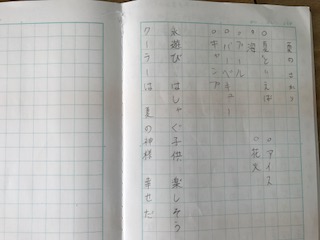 夏のさがし
○夏といえば
○海
○プール
○バーベキュー
○キャンプ
○アイス
○花火
水遊び はしゃぐ子供 楽しそう
クーラーは 夏の神様 幸せだ